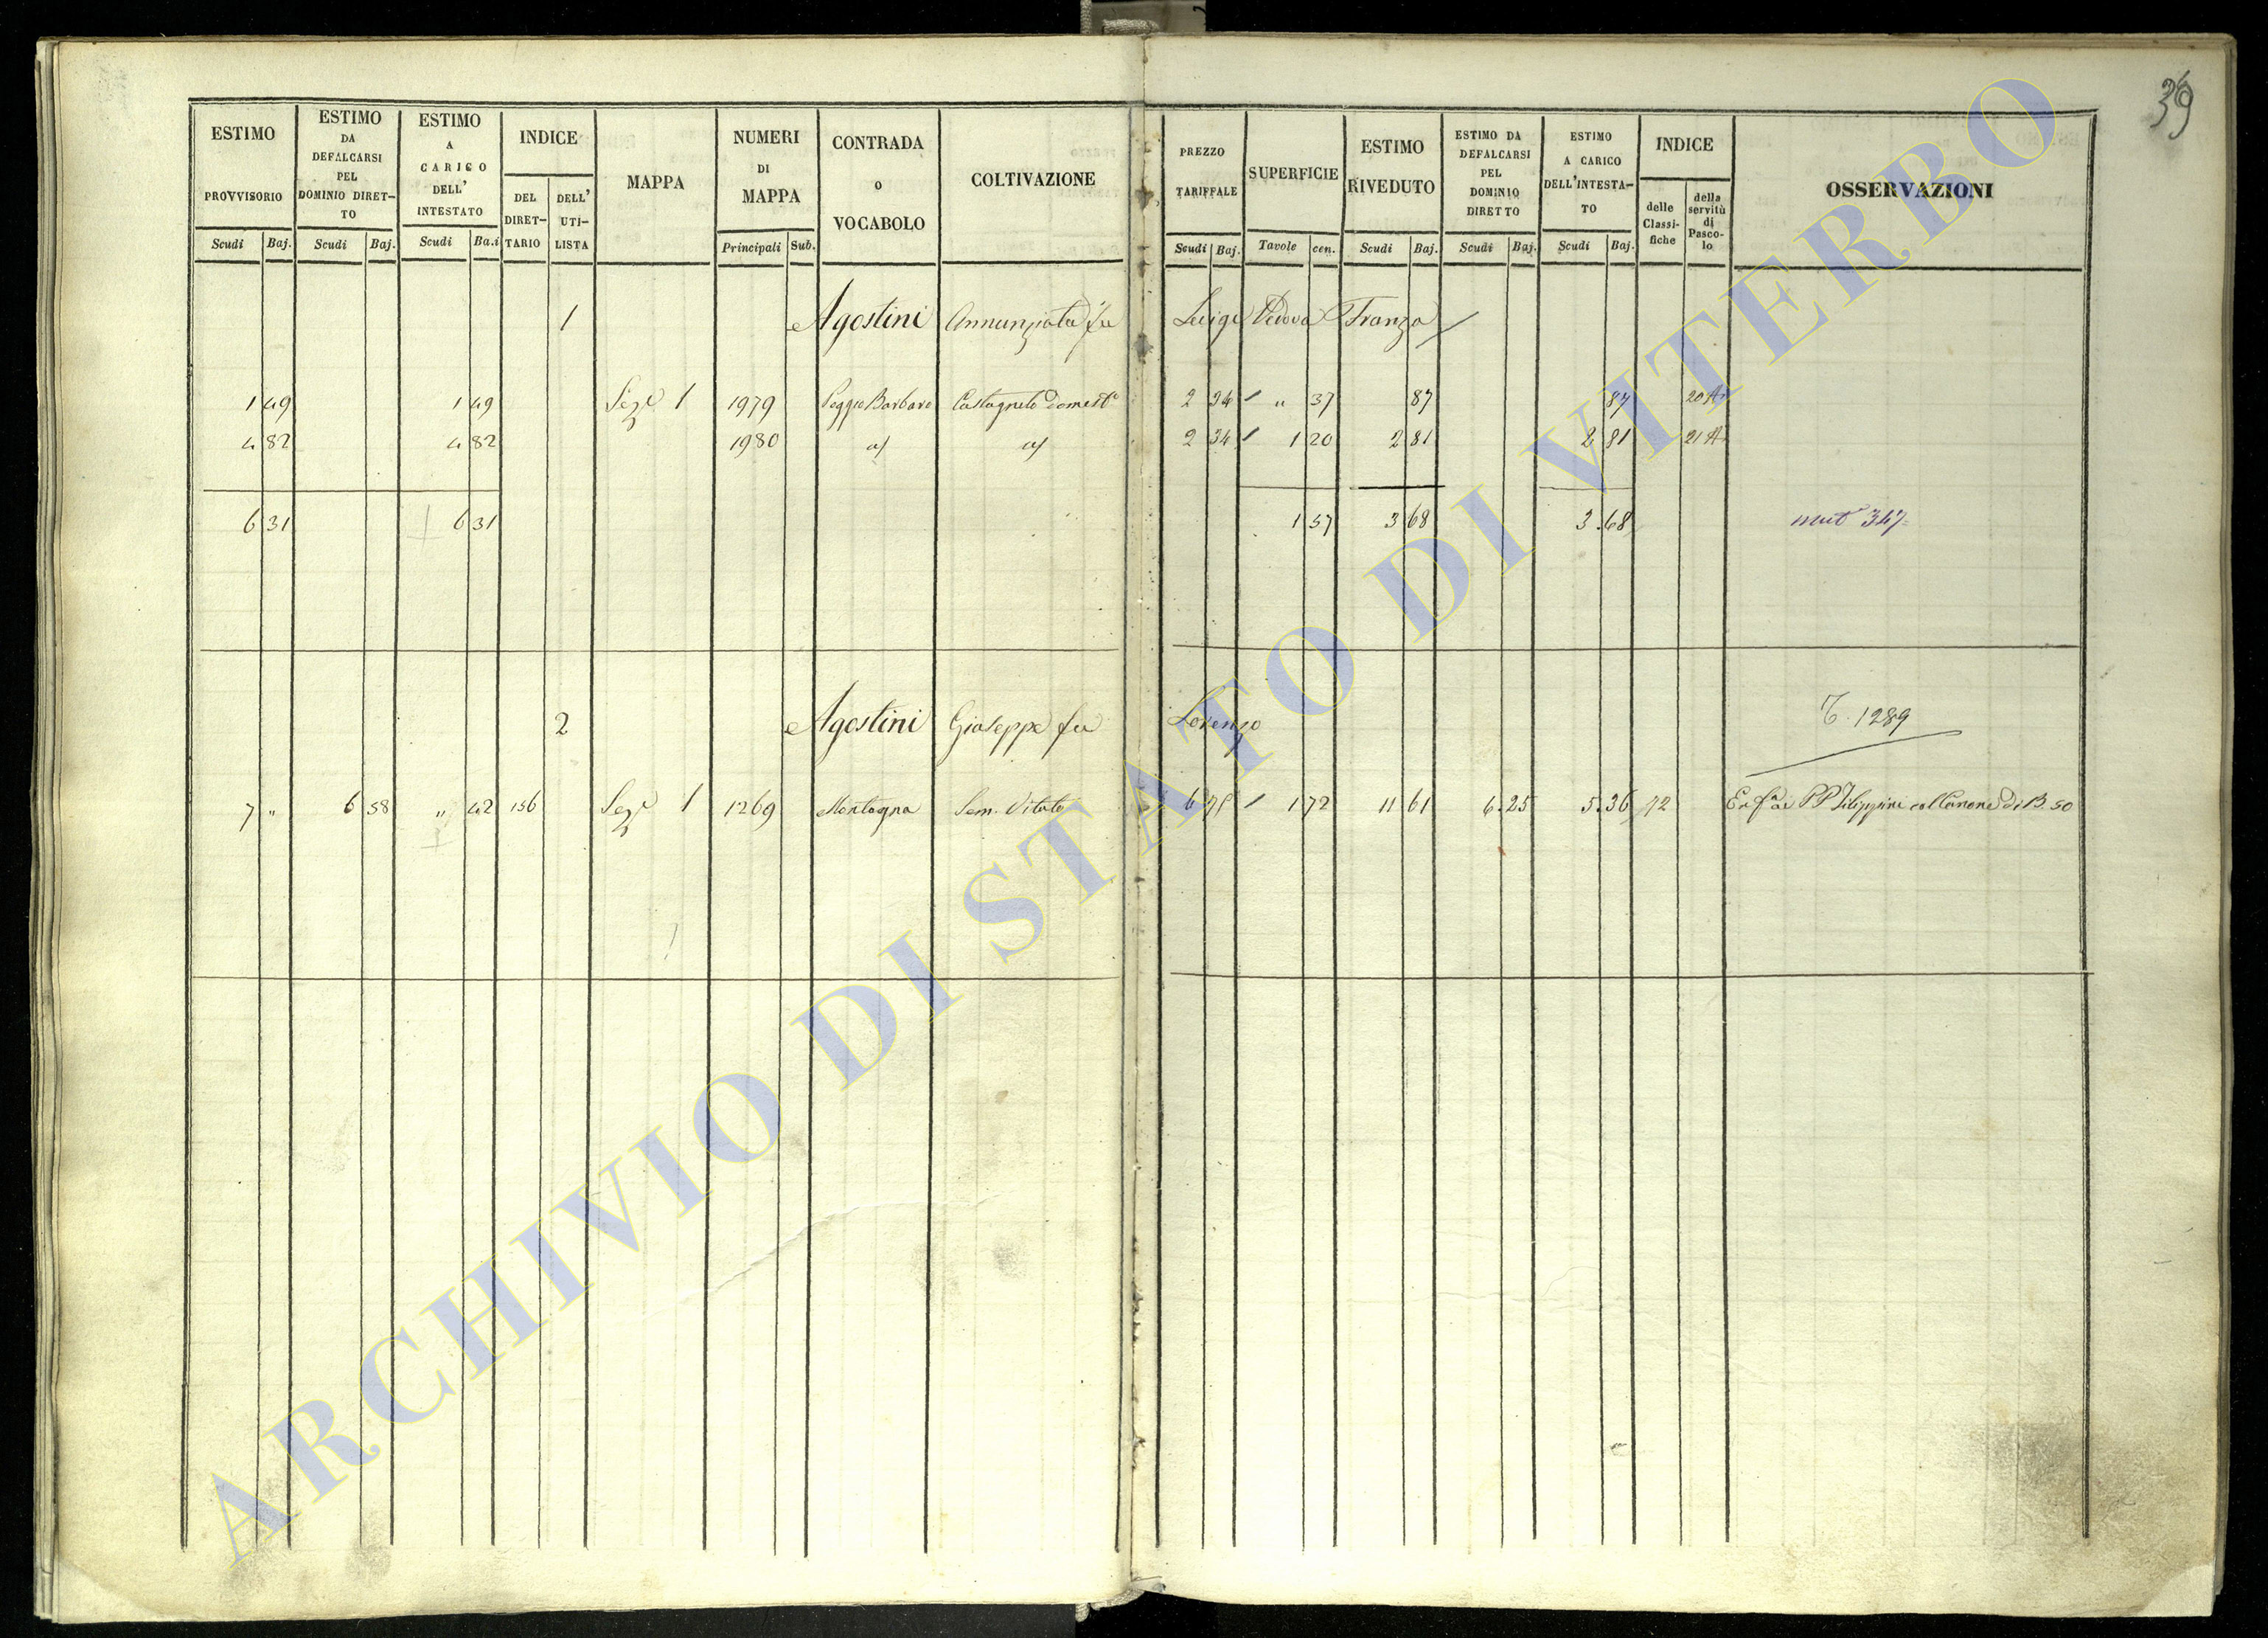 39
ESTIMO PROVVISORIO
ESTIMO DA DEFALCARSI PEL DOMINIO DIRETTO
ESTIMO A CARICO DELL' INTESTATO
INDICE
DEL DIRETTARIO
DELL' UTILISTA
MAPPA
NUMERI DI MAPPA
CONTRADA O VOCABOLO
COLTIVAZIONE
PREZZO TARIFFALE
SUPERFICIE
ESTIMO RIVEDUTO
ESTIMO DA DEFALCARSI PEL DOMINIO DIRETTO
ESTIMO A CARICO DELL'INTESTATO
INDICE
delle Classifiche
della servitù di Pascolo
OSSERVAZIONI
Scudi Baj. Scudi Baj. Scudi Ba.i Principali Sub. Scudi Baj. Tavole cen. Scudi Baj. Scudi Baj. Scudi Baj.
1 Agostini Annunziata fu Luigi Vedova Franza
1 49 1 49 Sez.e 1 1979 Poggio Barbaro Castagneto Domest.o 2 34 " 37 87 87 20 A
4 82 4 82 1980 a/ a/ 2 34 1 20 2 81 2 81 21 A
6 31 6 31 1 57 3 68 3.68 mut 347
2 Agostini Giuseppe fu Lorenzo 1289
7 " 6 58 " 42 156 Sez.e 1 1269 Montagna Sem. Vitato 6 75 1 72 11 61 6.25 5.36 72 Enf.a ai PP Filippini col Canone di B. 50
ARCHIVIO DI STATO DI VITERBO